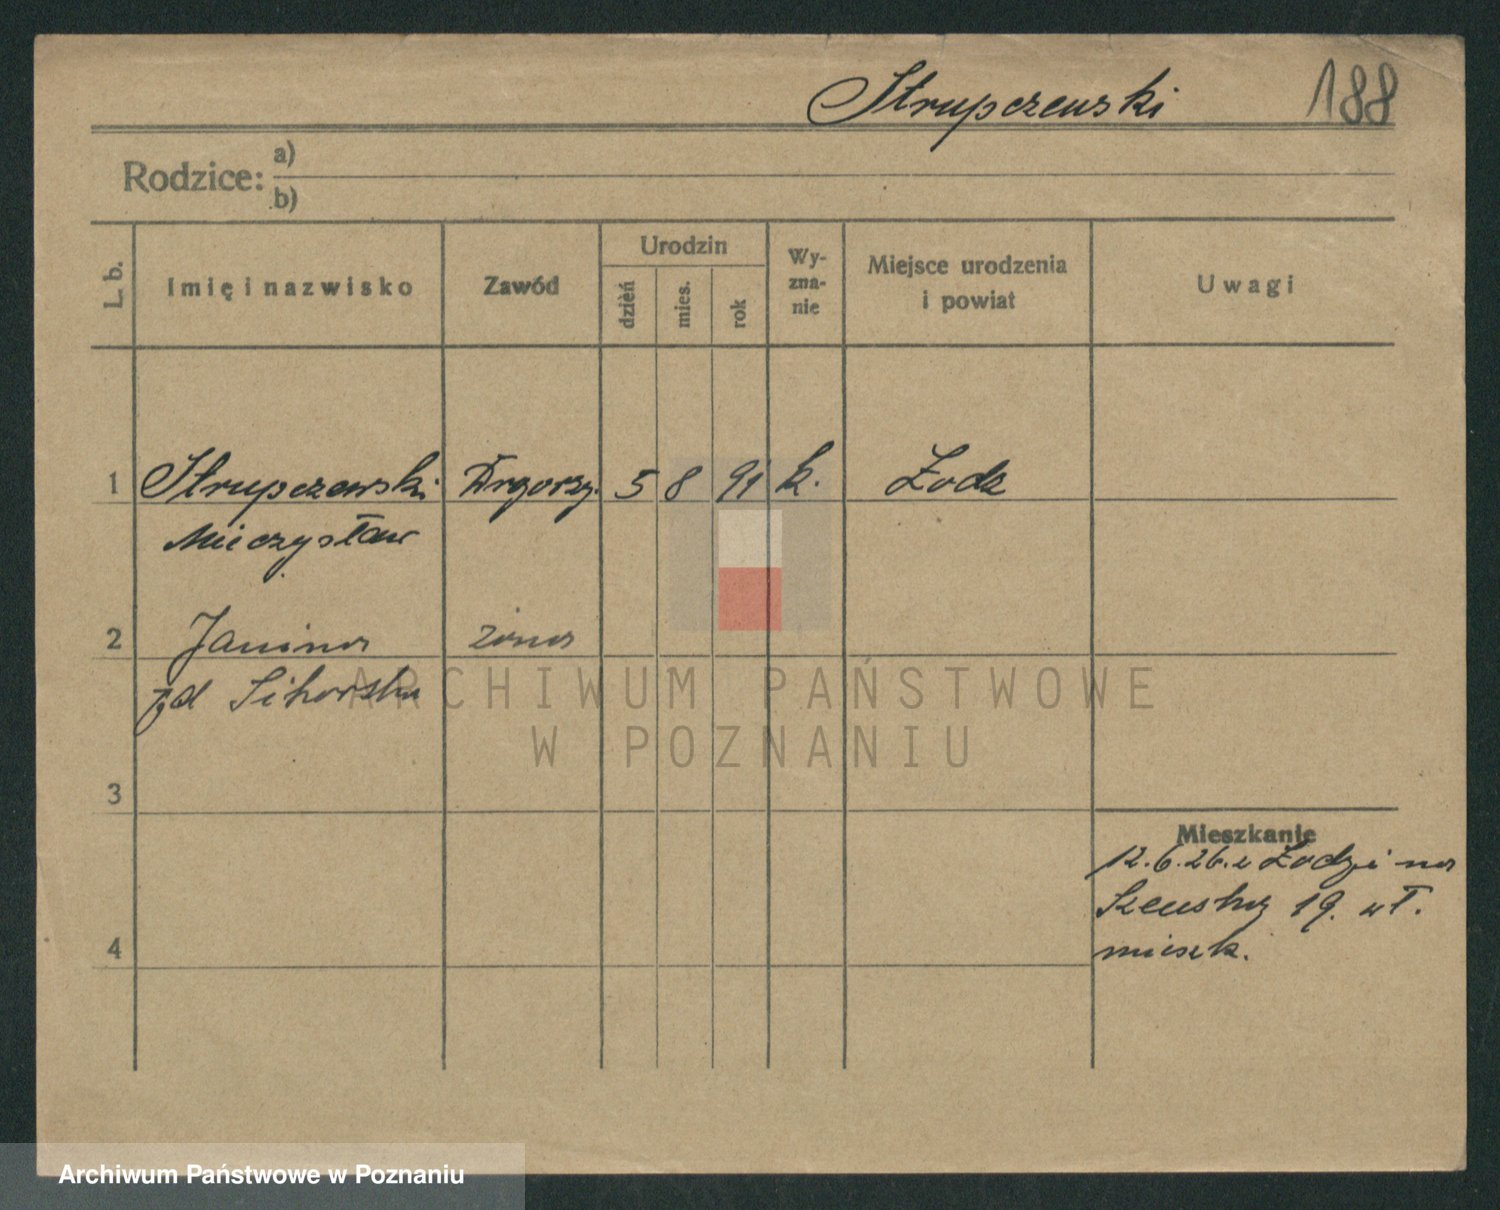 Strupczewski 188
Rodzice: a)
b)
L. b. Imię i nazwisko Zawód Urodzin dzień mies. rok Wy-zna-nie Miejsce urodzenia i powiat Uwagi
1 Strupczewski 5 8 91 k. Łodz
Mieczysław
2 Janina żona
Sikorska
3
Mieszkanie
12.6.26. z Łodzi na
19. wł.
4 mieszk.
ARCHIWUM PAŃSTWOWE
W POZNANIU
Archiwum Państwowe w Poznaniu